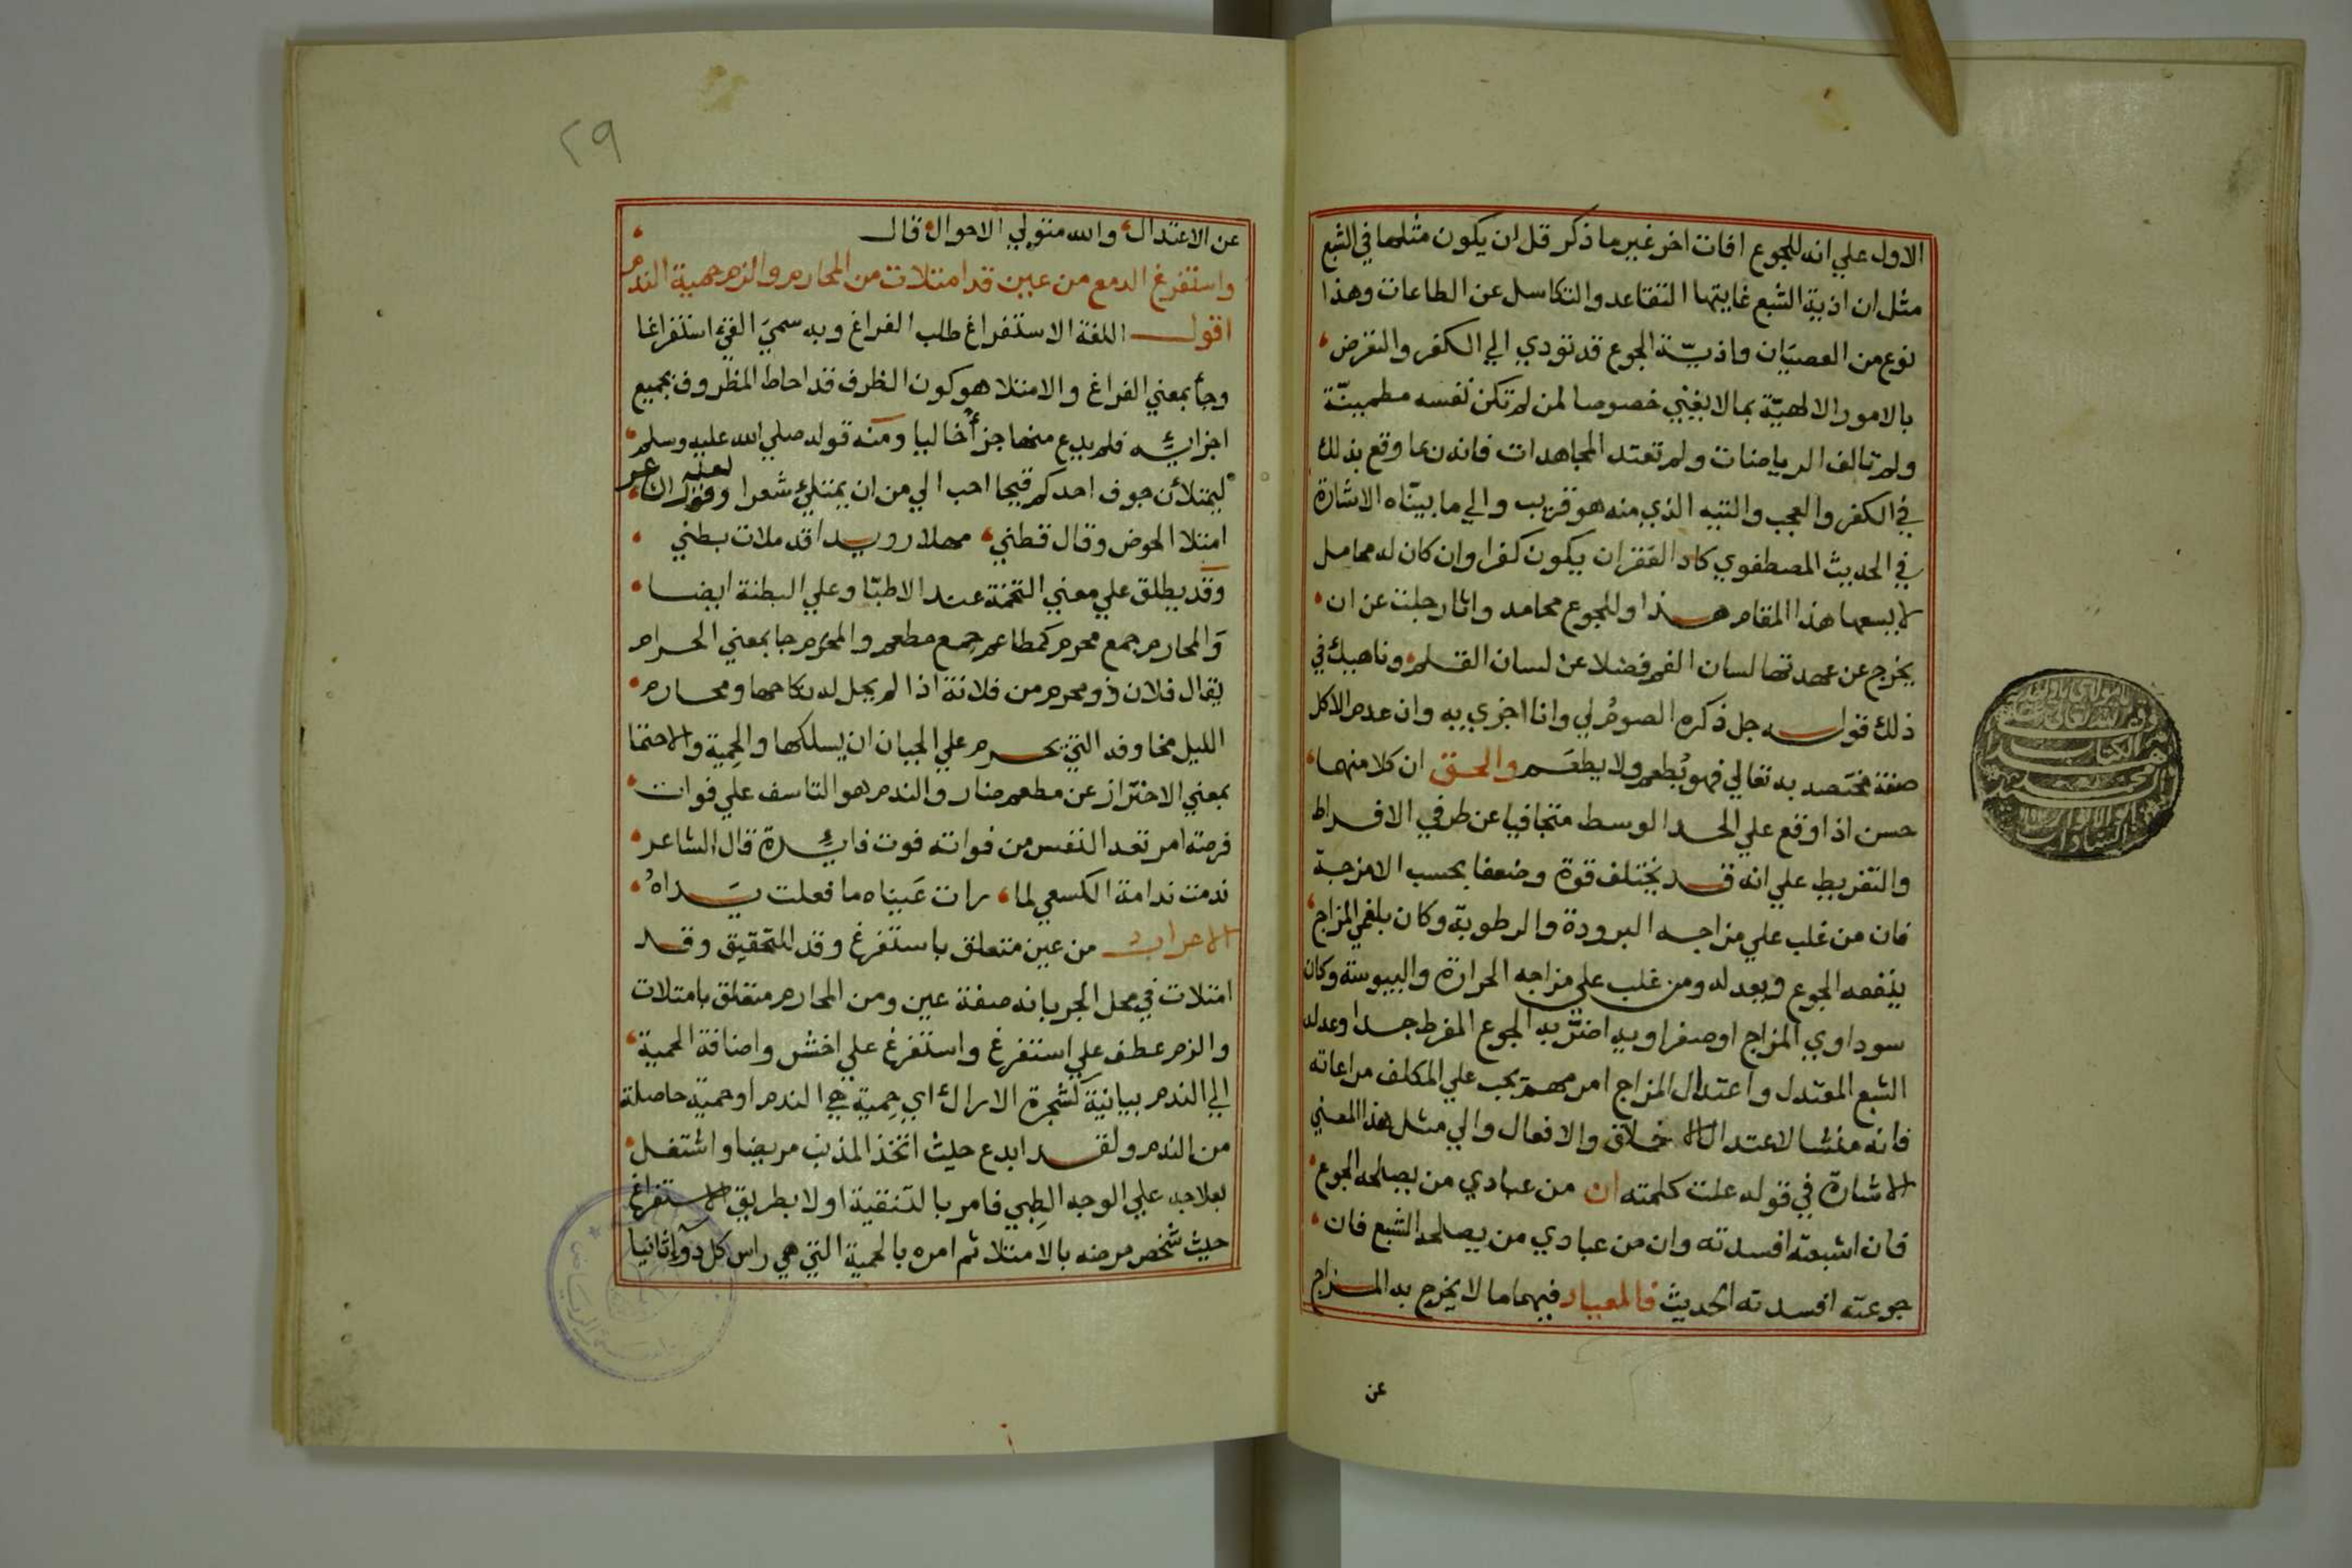 الاول علي انه للجوع افات اخر غير ما ذكر قل ان يكون مثلها في الشبع
مثل ان اذية الشبع غايتها التقاعد والتكاسل عن الطاعات وهذا
نوع من العصيان واذيّة الجوع قد تودي الي الكفر والتعرض
بالامور الالهيّة بما لا يغني خصوصا لمن لم تكن نفسه مطمينّة
ولم تالف الرياضات ولم تعتد المجاهدات فاندن عا وقع بذلك
في الكفر والعجب والتيه الذي منه هو قريب والي ما بيناه الاشارة
في الحديث المصطفوي كاد الفقر ان يكون كفرا وان كان له محامل
لا يسعها هذا المقام هذا وللجوع محامد واثار جلت عن ان
يخرج عن عهدتها لسان الفم فضلا عن لسان القلم وناهيك في
ذلك قوله جل ذكره الصوم لي وانا اجزي به وان عدم الاكل
صفة مختصه به تعالي فهو يُطعم ولا يطعَم والحق ان كلا منهما
حسن اذا وقع علي الحد الوسط متجافيا عن طرفي الافراط
والتفريط علي انه قد يختلف قوة وضعفا بحسب الامزجة
فان من غلب علي مزاجه البرودة والرطوبة وكان بلغمي المزاج
ينفعه الجوع ويعدله ومن غلب علي مزاجه الحرارة واليبوسة وكان
سوداوي المزاج او صفراويه اضرّ به الجوع المفرط جدا وعدله
الشبع المعتدل واعتدال المزاج امر مهم يجب علي المكلف مراعاته
فانه منشا لاعتدال الاخلاق والافعال والي مثل هذا المعني
الاشارة في قوله علت كلمته ان من عبادي من يصلحه الجوع
فان اشبعته افسدته وان من عبادي من يصلحه الشبع فان
جوعته افسدته الحديث فالمعيار فيهما ما لا يخرج به المزاج
عن
٢٩
عن الاعتدال والله متولي الاحوال قال
واستفرغ الدمع من عين قد امتلات من المحارم والزم حمية الندم
اقول اللغة الاستفراغ طلب الفراغ وبه سميَ القئ استفراغا
وجأ بمعني الفراغ والامتلا هو كون الظرف قد احاط المظروف بجميع
اجزائه فلم يدع منها جزأ خاليا ومنه قوله صلي الله عليه وسلم
ليمتلأن جوف احدكم قيحا احب الي من ان يمتلئ شعرا وقول
امتلا الحوض وقال قطني مهلا رويدا قد ملات بطني
وقد يطلق علي معني التخمة عند الاطبّا وعلي البطنة ايضا
وَالمحارم جمع محرم كمطاعم جمع مطعم والمحرم جا بمعني الحرام
يقال فلان ذو محرم من فلانة اذا لم يحل له نكاحها ومحارم
الليل مخاوفه التي يحرم علي الجبان ان يسلكها والحِمية والاحتما
بمعني الاحتراز عن مطعم ضار والندم هو التاسف علي فوات
فرصة امر تعد النفس من فواته فوت فائدة قال الشاعر
ندمت ندامة الكسعي لما رات عَيناه ما فعلت يَداهُ
الاعراب من عين متعلق باستفرغ وقد للتحقيق وقد
امتلات في محل الجر بانه صفة عين ومن المحارم متعلق بامتلات
والزم عطف علي استفرغ واستفرغ علي اخش واضافة الحمية
الي الندم بيانية كشجرة الاراك اي حِمية هي الندم او حمية حاصلة
من الندم ولقد ابدع حيث اتخذ المذنب مريضا واشتغل
بعلاجه علي الوجه الطبي فامر بالتنقية اولا بطريق الاستفراغ
حيث شخص مرضه بالامتلا ثم امره بالحمية التي هي راس كل دوإ ثانيا